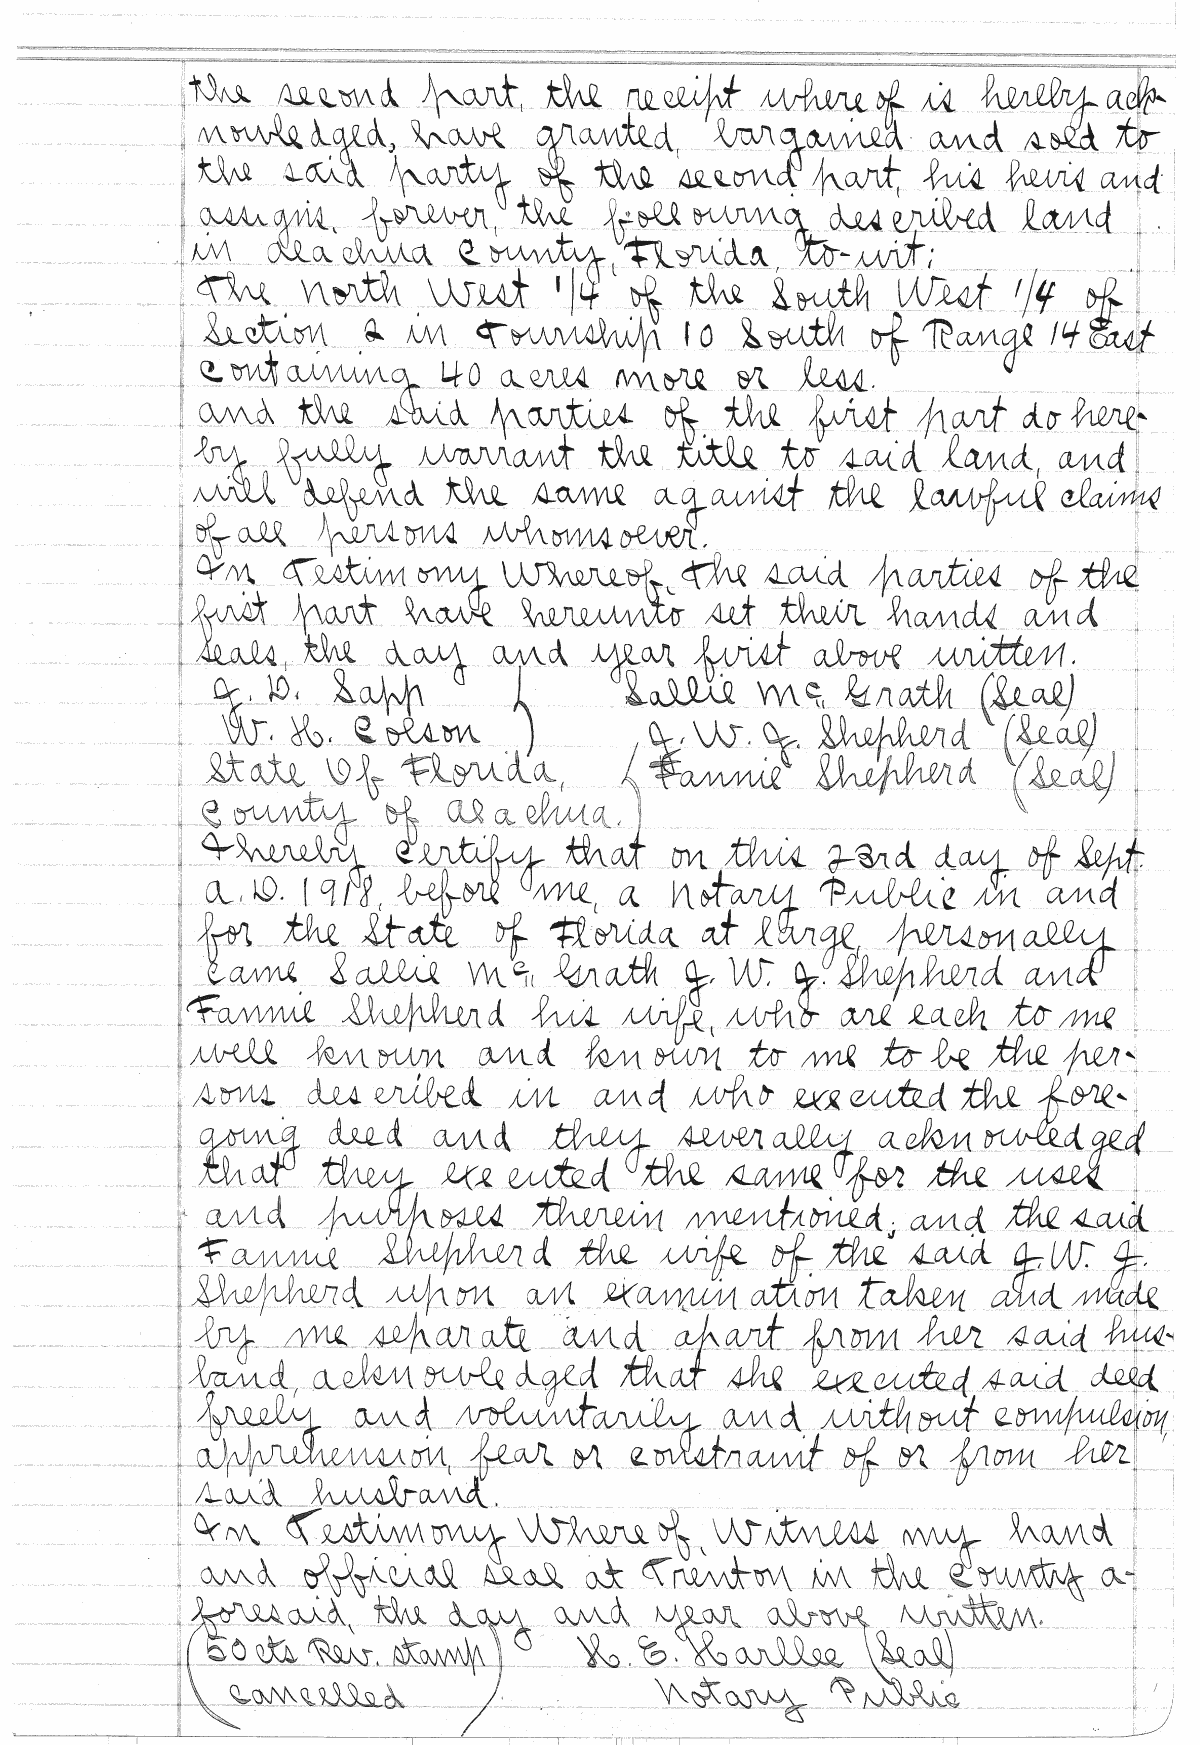 the second part, the receipt where of is hereby ack-
nowledged, have granted, bargained and sold to
the said party of the second part, his heirs and
assigns, forever, the following described land
in Alachua County, Florida, to-wit;
The North West 1/4 of the South West 1/4 of
Section 2 in Township 10 South of Range 14 East
containing 40 acres more or less.
and the said parties of the first part do here-
by fully warrant the title to said land, and
will defend the same against the lawful claims
of all persons whomsoever.
In Testimony Whereof, The said parties of the
first part have hereunto set their hands and
seals, the day and year first above written.
J. D. Sapp ) Sallie Mc. Grath (Seal)
W. H. Colson ) J. W. J. Shepherd (Seal)
State Of Florida, ( Fannie Shepherd (Seal)
County of Alachua. )
I hereby certify that on this 23rd day of Sept.
A. D. 1918, before me, a Notary Public in and
for the State of Florida at large, personally
came Sallie Mc. Grath J. W. J. Shepherd and
Fannie Shepherd his wife, who are each to me
well known and known to me to be the per-
sons described in and who executed the fore-
going deed and they severally acknowledged
that they executed the same for the uses
and purposes therein mentioned; and the said
Fannie Shepherd the wife of the said J. W. J.
Shepherd upon an examination taken and made
by me separate and apart from her said hus-
band, acknowledged that she executed said deed
freely and voluntarily and without compulsion,
apprehension, fear or constraint of or from her
said husband.
In Testimony Where of, Witness my hand
and official seal at Trenton in the County a-
foresaid, the day and year above written.
(50 cts Rev. stamp) H. E. Harllee (Seal)
( cancelled ) Notary Public